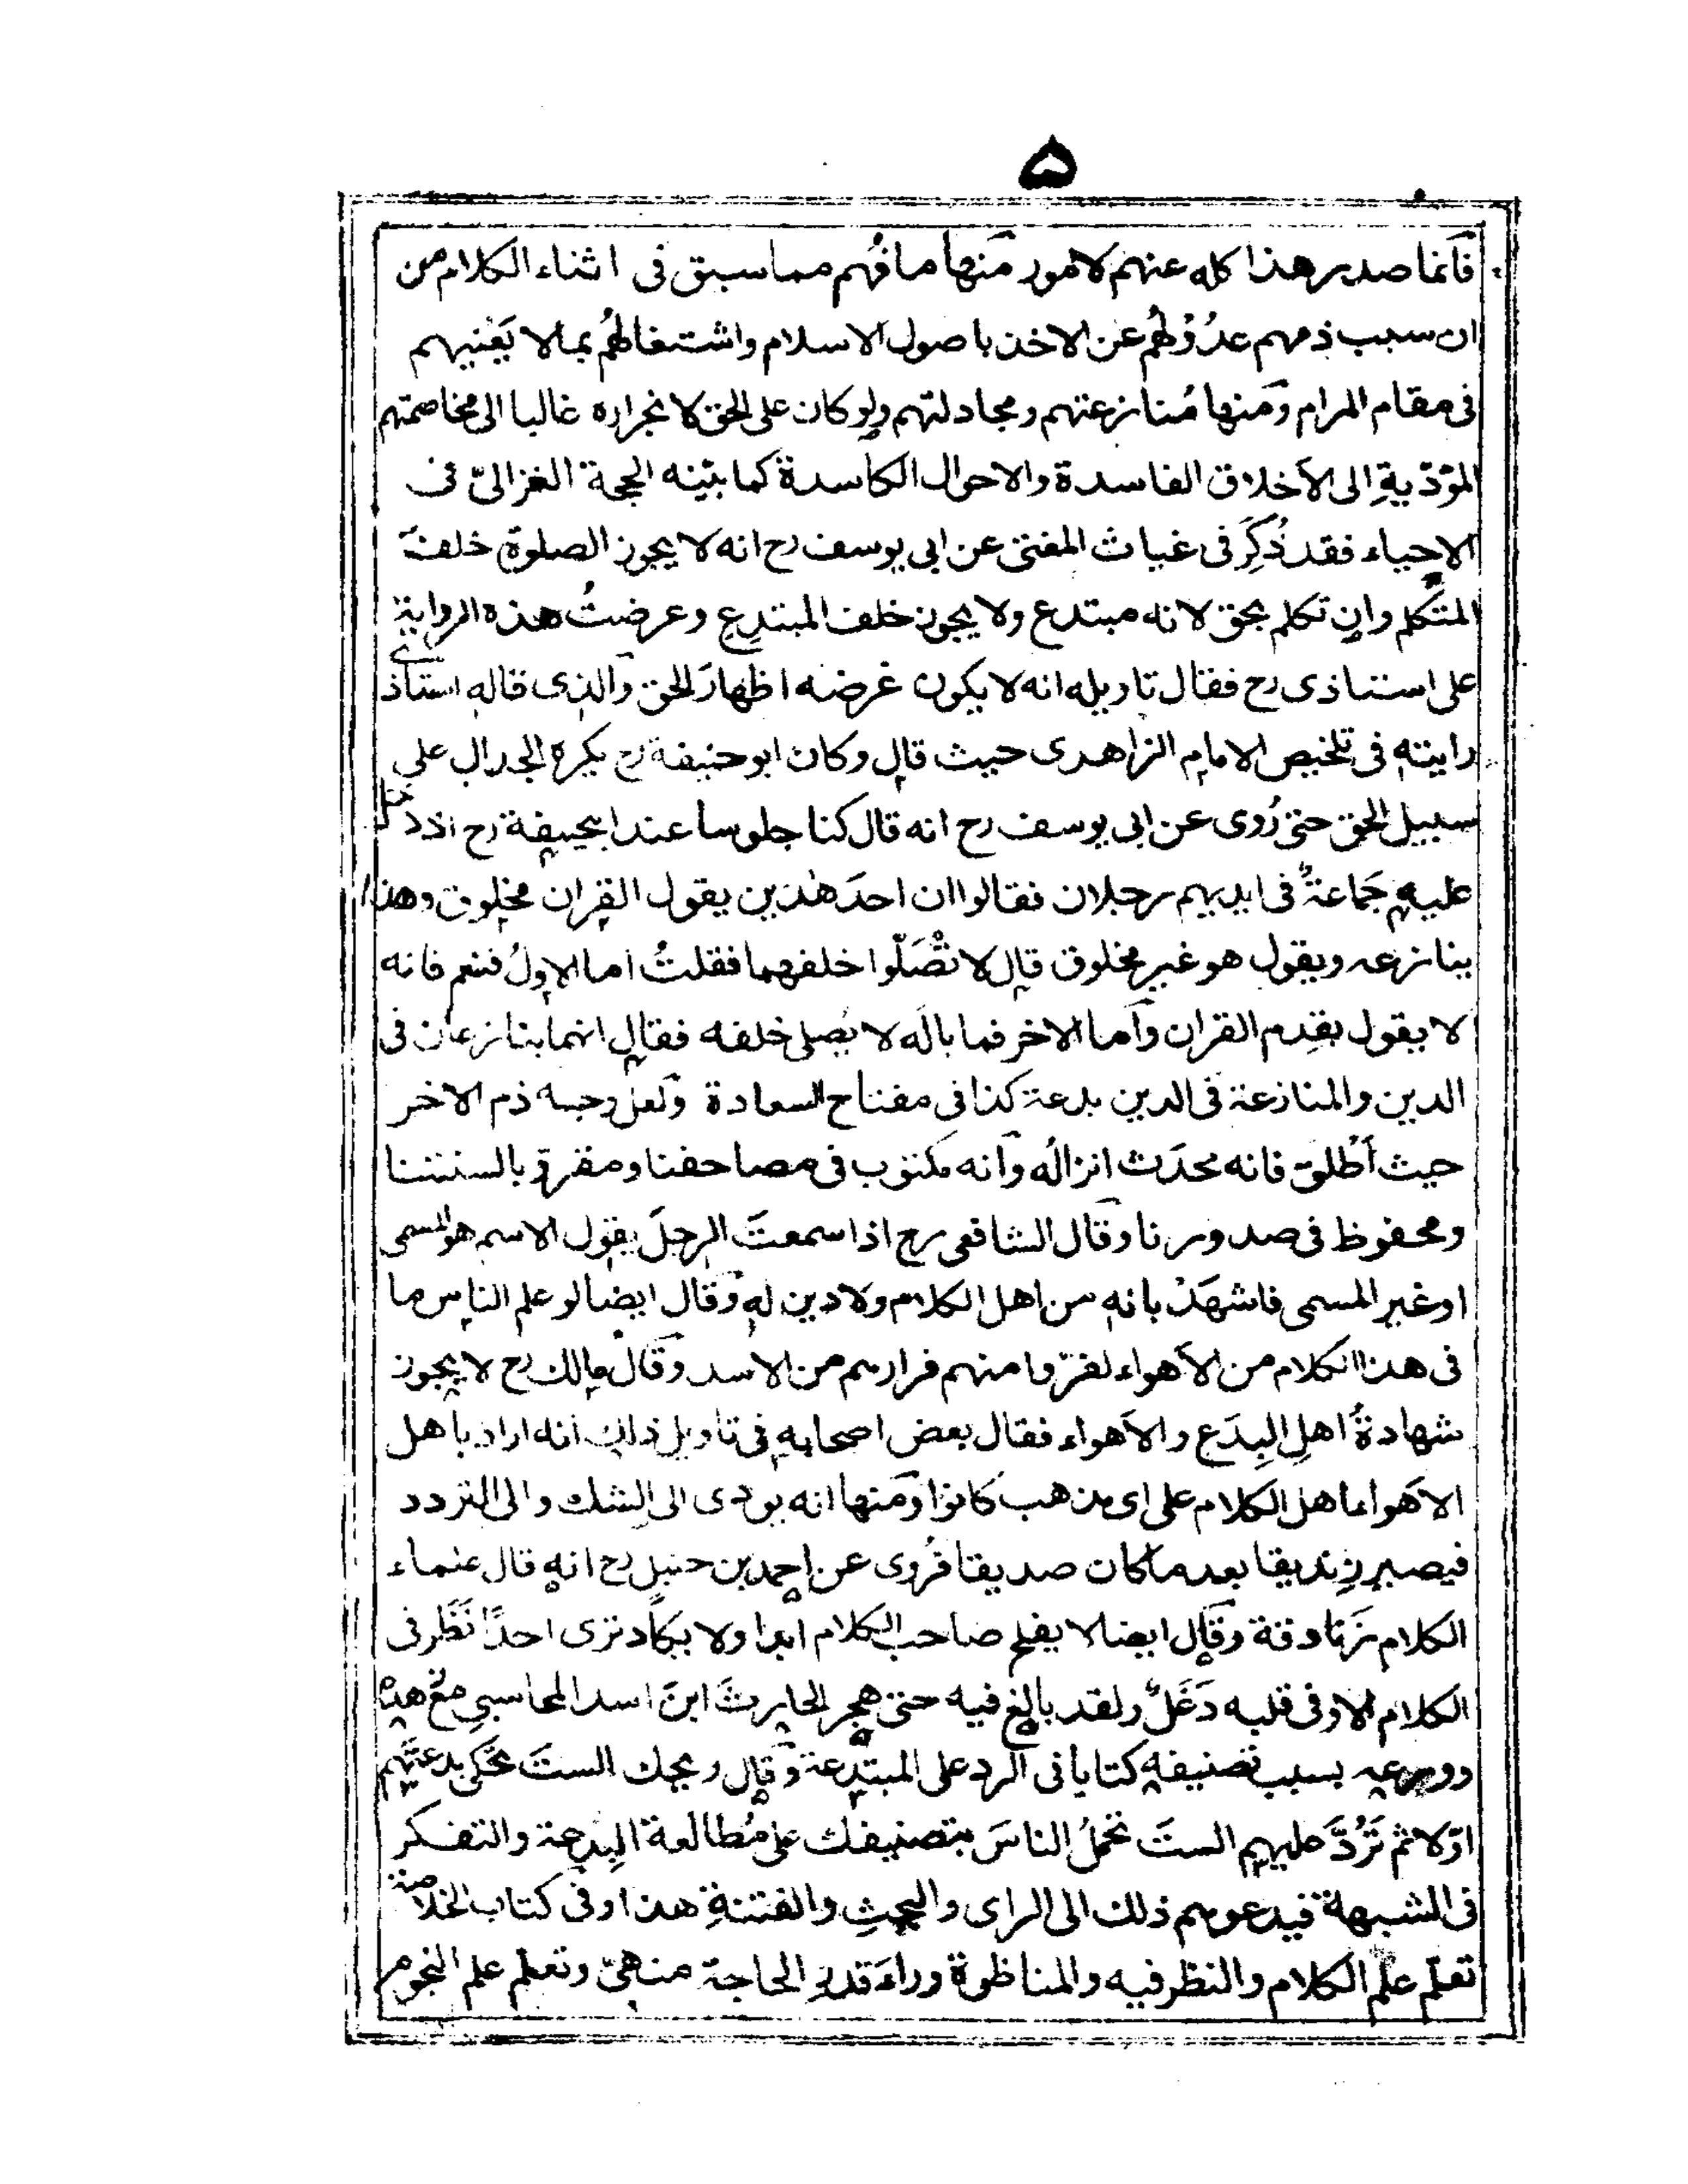 ۵
فانما صدر هذا كله عنهم لامور منها ما فُهم مما سبق فى اثناء الكلام من
ان سبب ذمهم عدُوْلُهُم عن الاخذ باصول الاسلام واشتغالُهُم بما لا يَعْنيهم
فى مقام المرام ومنها مُنازعتهم ومجادلتهم ولو كان على الحق لانجراره غالبا الى مخاصمتهم
المؤدّيةِ الى الاَخلاق الفاسدة والاحوال الكاسدة كما بيّنه الحجة الغزالىّ فى
الاحياء فقد ذُكِرَ فى غياث المفتى عن ابى يوسف رح انه لا يجوز الصلوة خلف
المتكلم وان تكلم بحق لانه مبتدع ولا يجوز خلف المبتدِعِ وعرضتُ هذه الرواية
على استاذى رح فقال تاويله انه لا يكون غرضه اظهارَ الحق والذى قاله استاذى
رايته فى تلخيص الامام الزاهدى حيث قال وكان ابوحنيفة رح يكره الجدال على
سبيل الحق حتى رُوى عن ابى يوسف رح انه قال كنا جلوسا عند ابيحنيفة رح اذ دخل
عليه جَمَاعةٌ فى ايديهم رجلان فقالوا ان احدَ هٰذين يقول القران مخلوق وهذا
ينازعه ويقول هو غير مخلوق قال لا تُصَلّوا خلفهما فقلتُ اما الاولُ فنعم فانه
لا يقول بقِدم القران واما الاخر فما باله لا يُصلى خلفه فقال انهما ينازعان فى
الدين والمنازعة فى الدين بدعة كذا فى مفتاح السعادة ولعل وجه ذم الاخر
حيث اَطْلق فانه محدَث انزالُه وانه مكتوب فى مصاحفنا ومقرو بالسنتنا
ومحفوظ فى صدورنا وقال الشافعى رح اذا سمعتَ الرجلَ يقول الاسم هو المسمى
اوغير المسمى فاشهَدْ بانه من اهل الكلام ولا دين له وقال ايضا لو علم الناس ما
فى هذا الكلام من الاَهواء لفرّوا منهم فرارهم من الاسد وقال مالك رح لا يجوز
شهادةُ اهلِ البِدَع والاَهواء فقال بعض اصحابه فى تاويل ذلك انه اراد باهل
الاَهواء اهل الكلام على اى مذهب كانوا ومنها انه يودى الى الشك والى التردد
فيصير زِنديقا بعد ما كان صديقا فرُوى عن احمد بن حنبل رح انه قال علماء
الكلام زَنادقة وقال ايضا لا يفلح صاحب الكلام ابدا ولا يكاد ترى احدًا نَظَر فى
الكلام الا وفى قلبه دَغَلٌ ولقد بالغ فيه حتى هجر الحارثَ ابنَ اسد المحاسبى مع زهده
وورعه بسبب تصنيفه كتابا فى الرد على المبتدعة وقال ويحك الستَ تحكى بدعتَهم
اوّلا ثم تَرُدَّ عليهم الستَ تحملُ الناسَ بتصنيفك على مُطالعة البِدعة والتفكر
فى الشبهة فيدعوهم ذلك الى الراى والبحثِ والفتنةِ هذا وفى كتاب الخلاصة
تعلّم علم الكلام والنظر فيه والمناظرة وراءَ قدرِ الحاجة منهىّ وتعلم علم النجوم